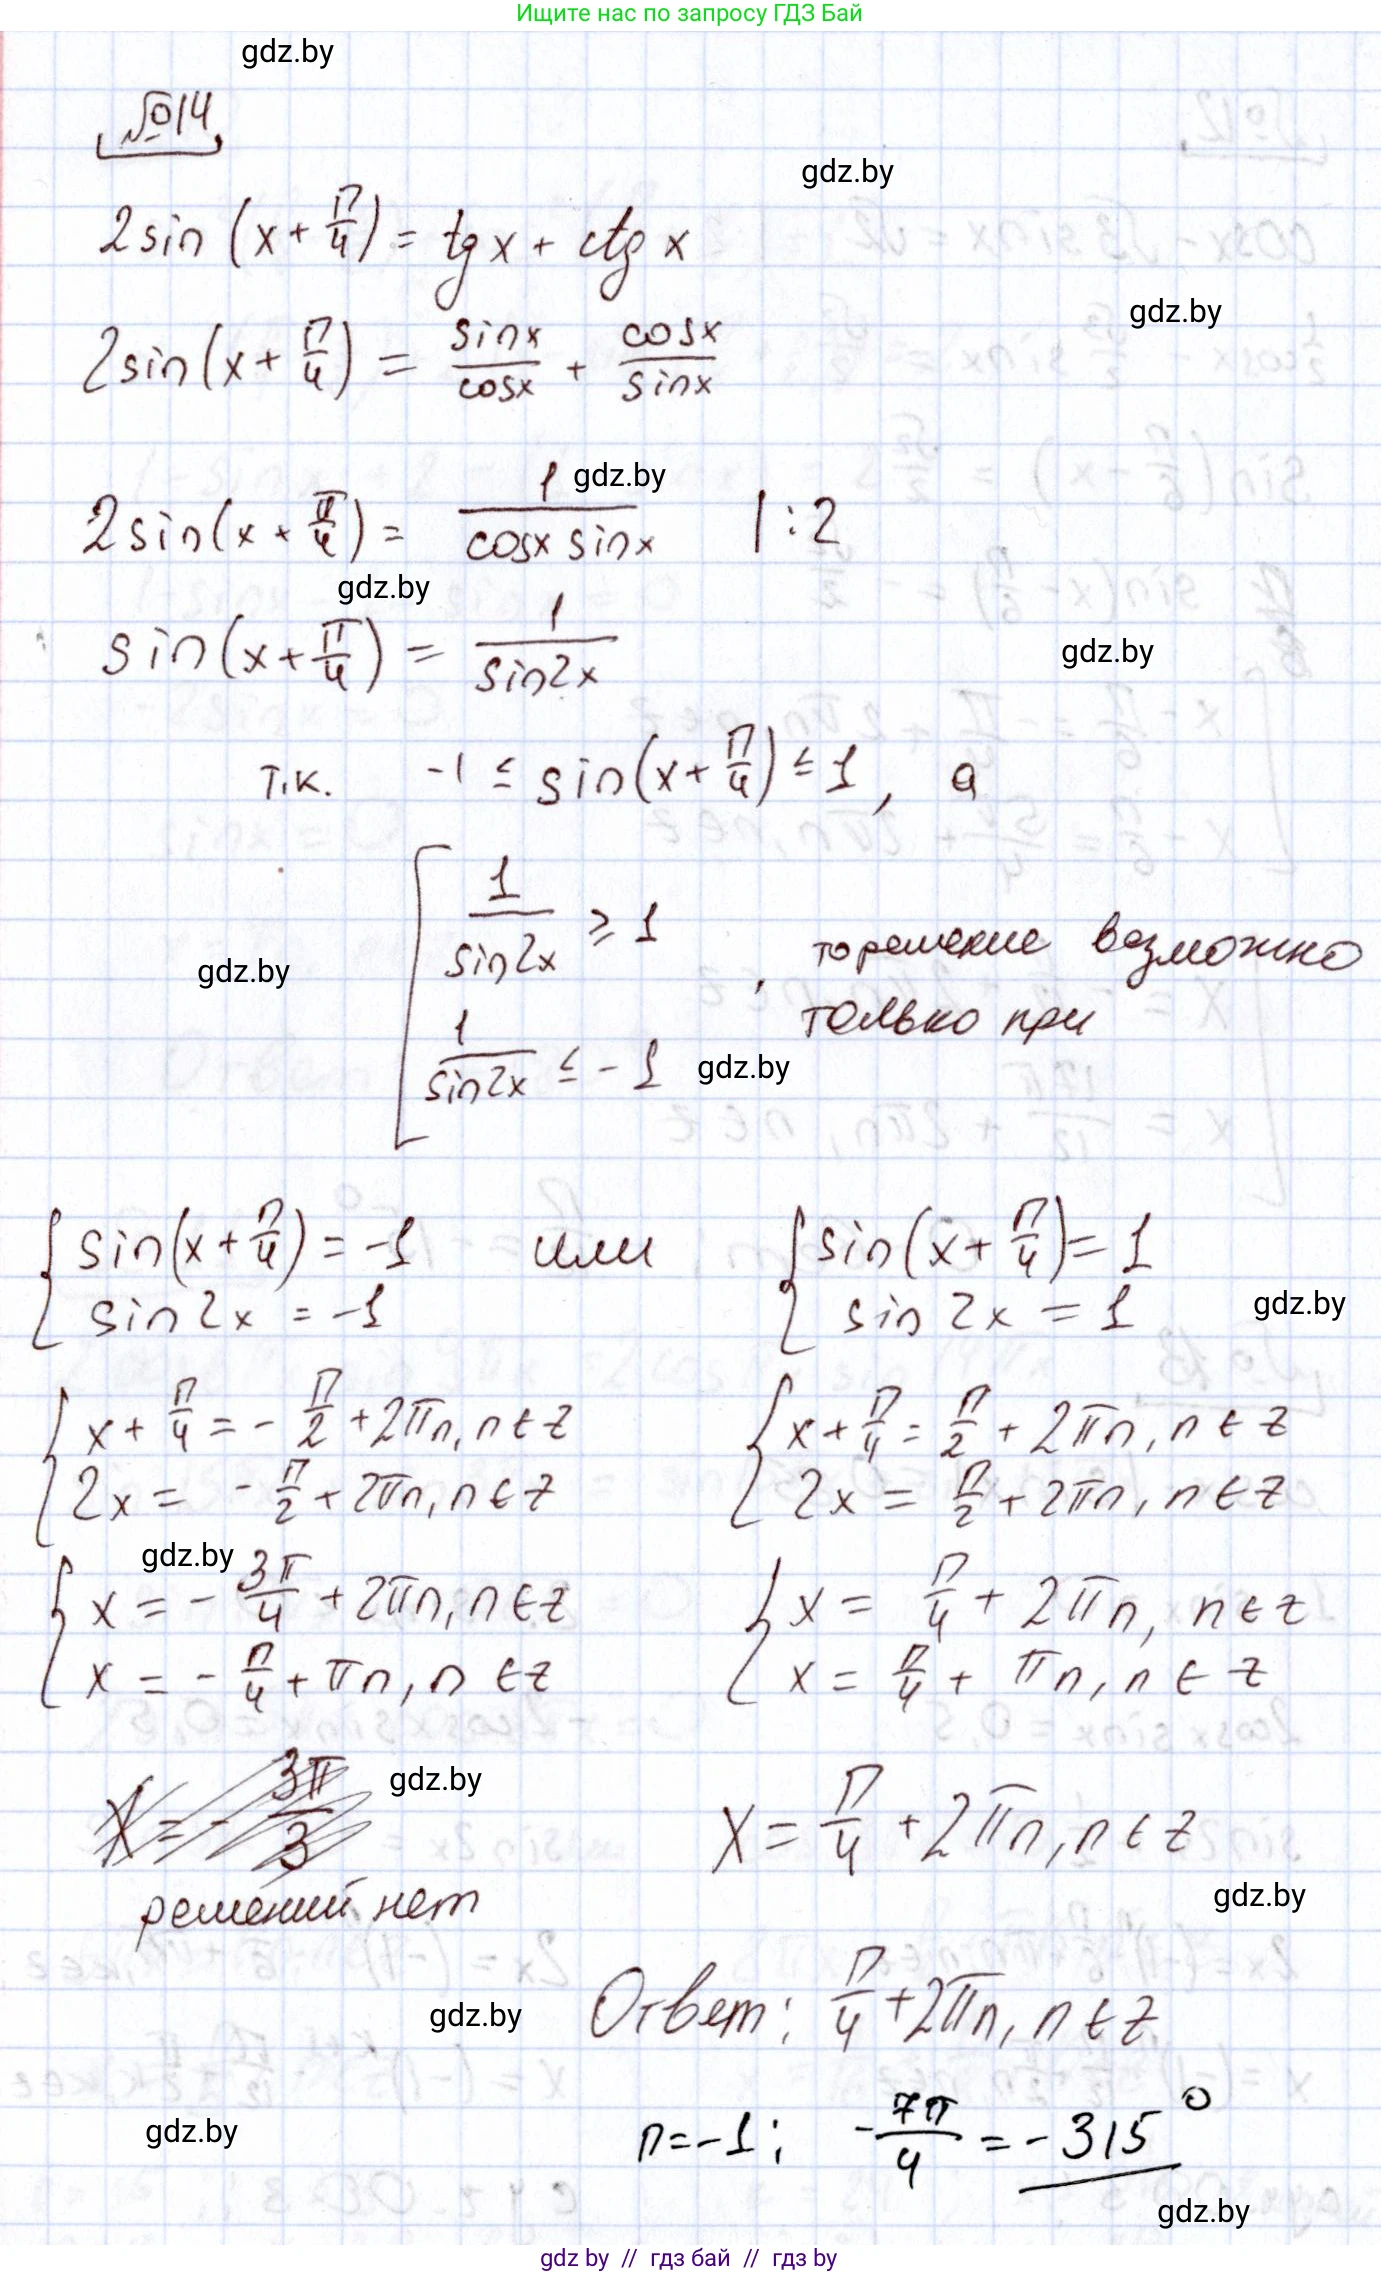 Ищите нас по запросу ГДЗ Бай
gdz.by
№14
gdz.by
2sin (x + π/4) = tg x + ctg x
gdz.by
2sin(x + π/4) = sinx/cosx + cosx/sinx
gdz.by
2sin(x + π/4) = 1/(cosx sinx) |:2
gdz.by
sin(x + π/4) = 1/sin2x
gdz.by
т.к. -1 ≤ sin(x + π/4) ≤ 1, а
[ 1/sin2x ≥ 1
gdz.by
, то решение возможно
только при
1/sin2x ≤ -1
gdz.by
{ sin(x + π/4) = -1 или { sin(x + π/4) = 1
sin2x = -1 sin2x = 1
gdz.by
{ x + π/4 = - π/2 + 2πn, n ∈ z { x + π/4 = π/2 + 2πn, n ∈ z
2x = - π/2 + 2πn, n ∈ z 2x = π/2 + 2πn, n ∈ z
gdz.by
{ x = - 3π/4 + 2πn, n ∈ z { x = π/4 + 2πn, n ∈ z
x = - π/4 + πn, n ∈ z x = π/4 + πn, n ∈ z
x = - 3π/3
gdz.by
x = π/4 + 2πn, n ∈ z
решений нет
gdz.by
Ответ: π/4 + 2πn, n ∈ z
gdz.by
n = -1; - 7π/4 = - 315°
gdz.by
gdz.by
gdz by // гдз бай // гдз by